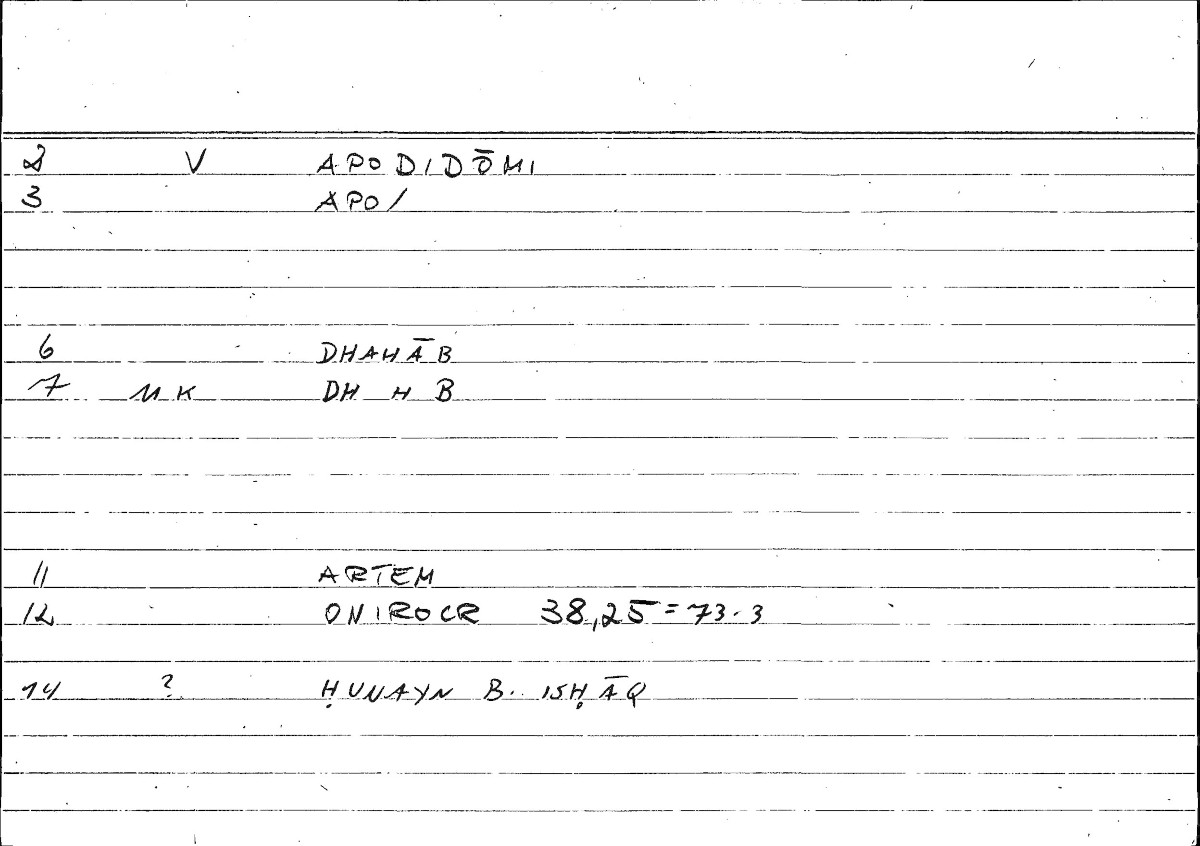 2 V APODIDŌMI
3 APO/
6 DHAHĀB
7 MK DH H B
11 ARTEM
12 ONIROCR 38,25=73.3
14 ? ḤUNAYN B. ISḤĀQ